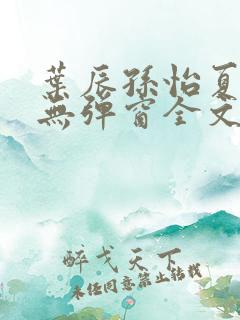 葉辰孫怡夏
無彈窗全文
醉戈天下
未經同意禁止轉載